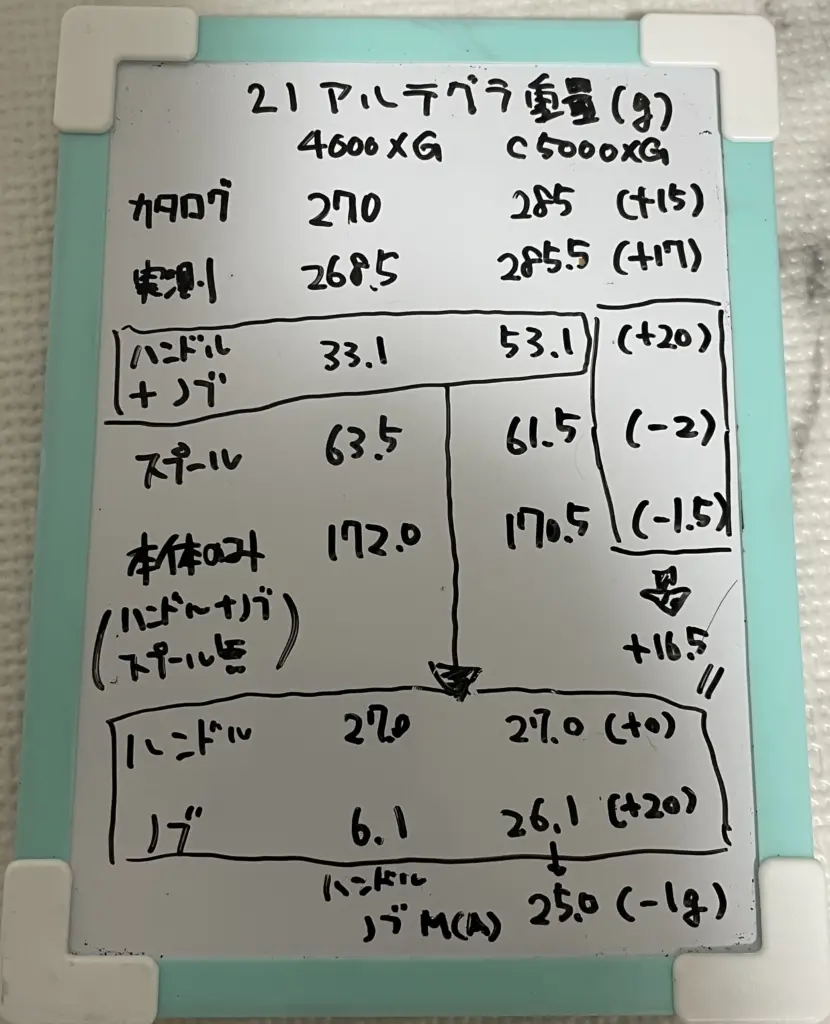 21 アルテグラ重量(g)
4000XG C5000XG
カタログ 270 285 (+15)
実測 268.5 285.5 (+17)
ハンドル 33.1 53.1 (+20)
+ノブ
スプール 63.5 61.5 (-2)
本体のみ 172.0 170.5 (-1.5)
(ハンドル+ノブ
スプール無)
+16.5
ハンドル 27.0 27.0 (+0)
ノブ 6.1 26.1 (+20)
ハンドル
ノブ M(A) 25.0 (-1g)